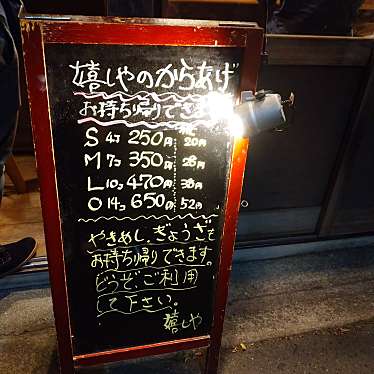 嬉しやのからあげ
お持ち帰りできます
S 4コ 250円 20円
M 7コ 350円 28円
L 10コ 470円 38円
O 14コ 650円 52円
やきめし、ぎょうざも
お持ち帰りできます。
どうぞ、ご利用
て下さい。
嬉しや